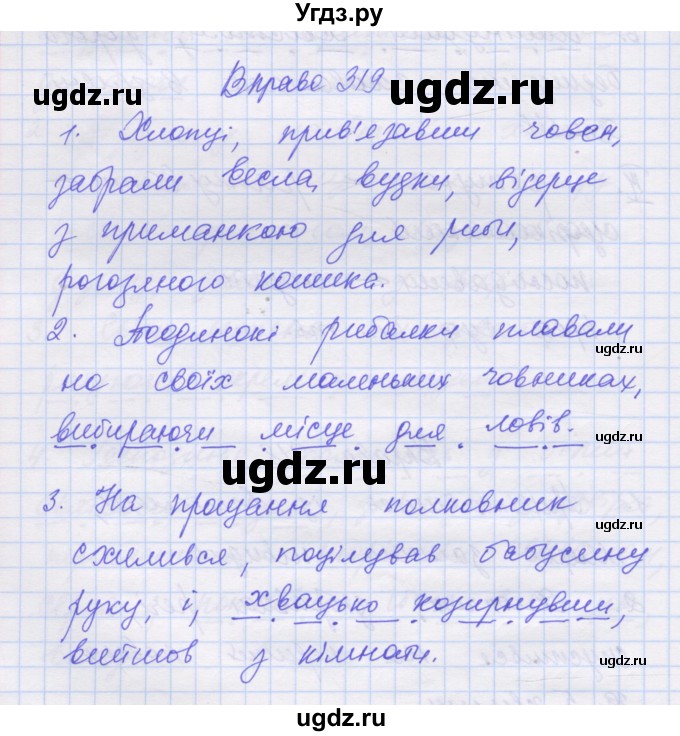 Угдз.ру
Вправа 319
1. Хлопці, прив'язавши човен,
забрали весла, вудки, відерце
з приманкою для риби,
рогозяного кошика.
2. Поодинокі рибалки плавали
на своїх маленьких човниках,
вибираючи місце для ловів.
3. На прощання полковник
схилився, поцілував бабусину
руку, і, хвацько козирнувши,
вийшов з кімнати.
ugdz.ru
ugdz.ru
ugdz.ru
ugdz.ru
ugdz.ru
ugdz.ru
ugdz.ru
ugdz.ru
ugdz.ru
ugdz.ru
ugdz.ru